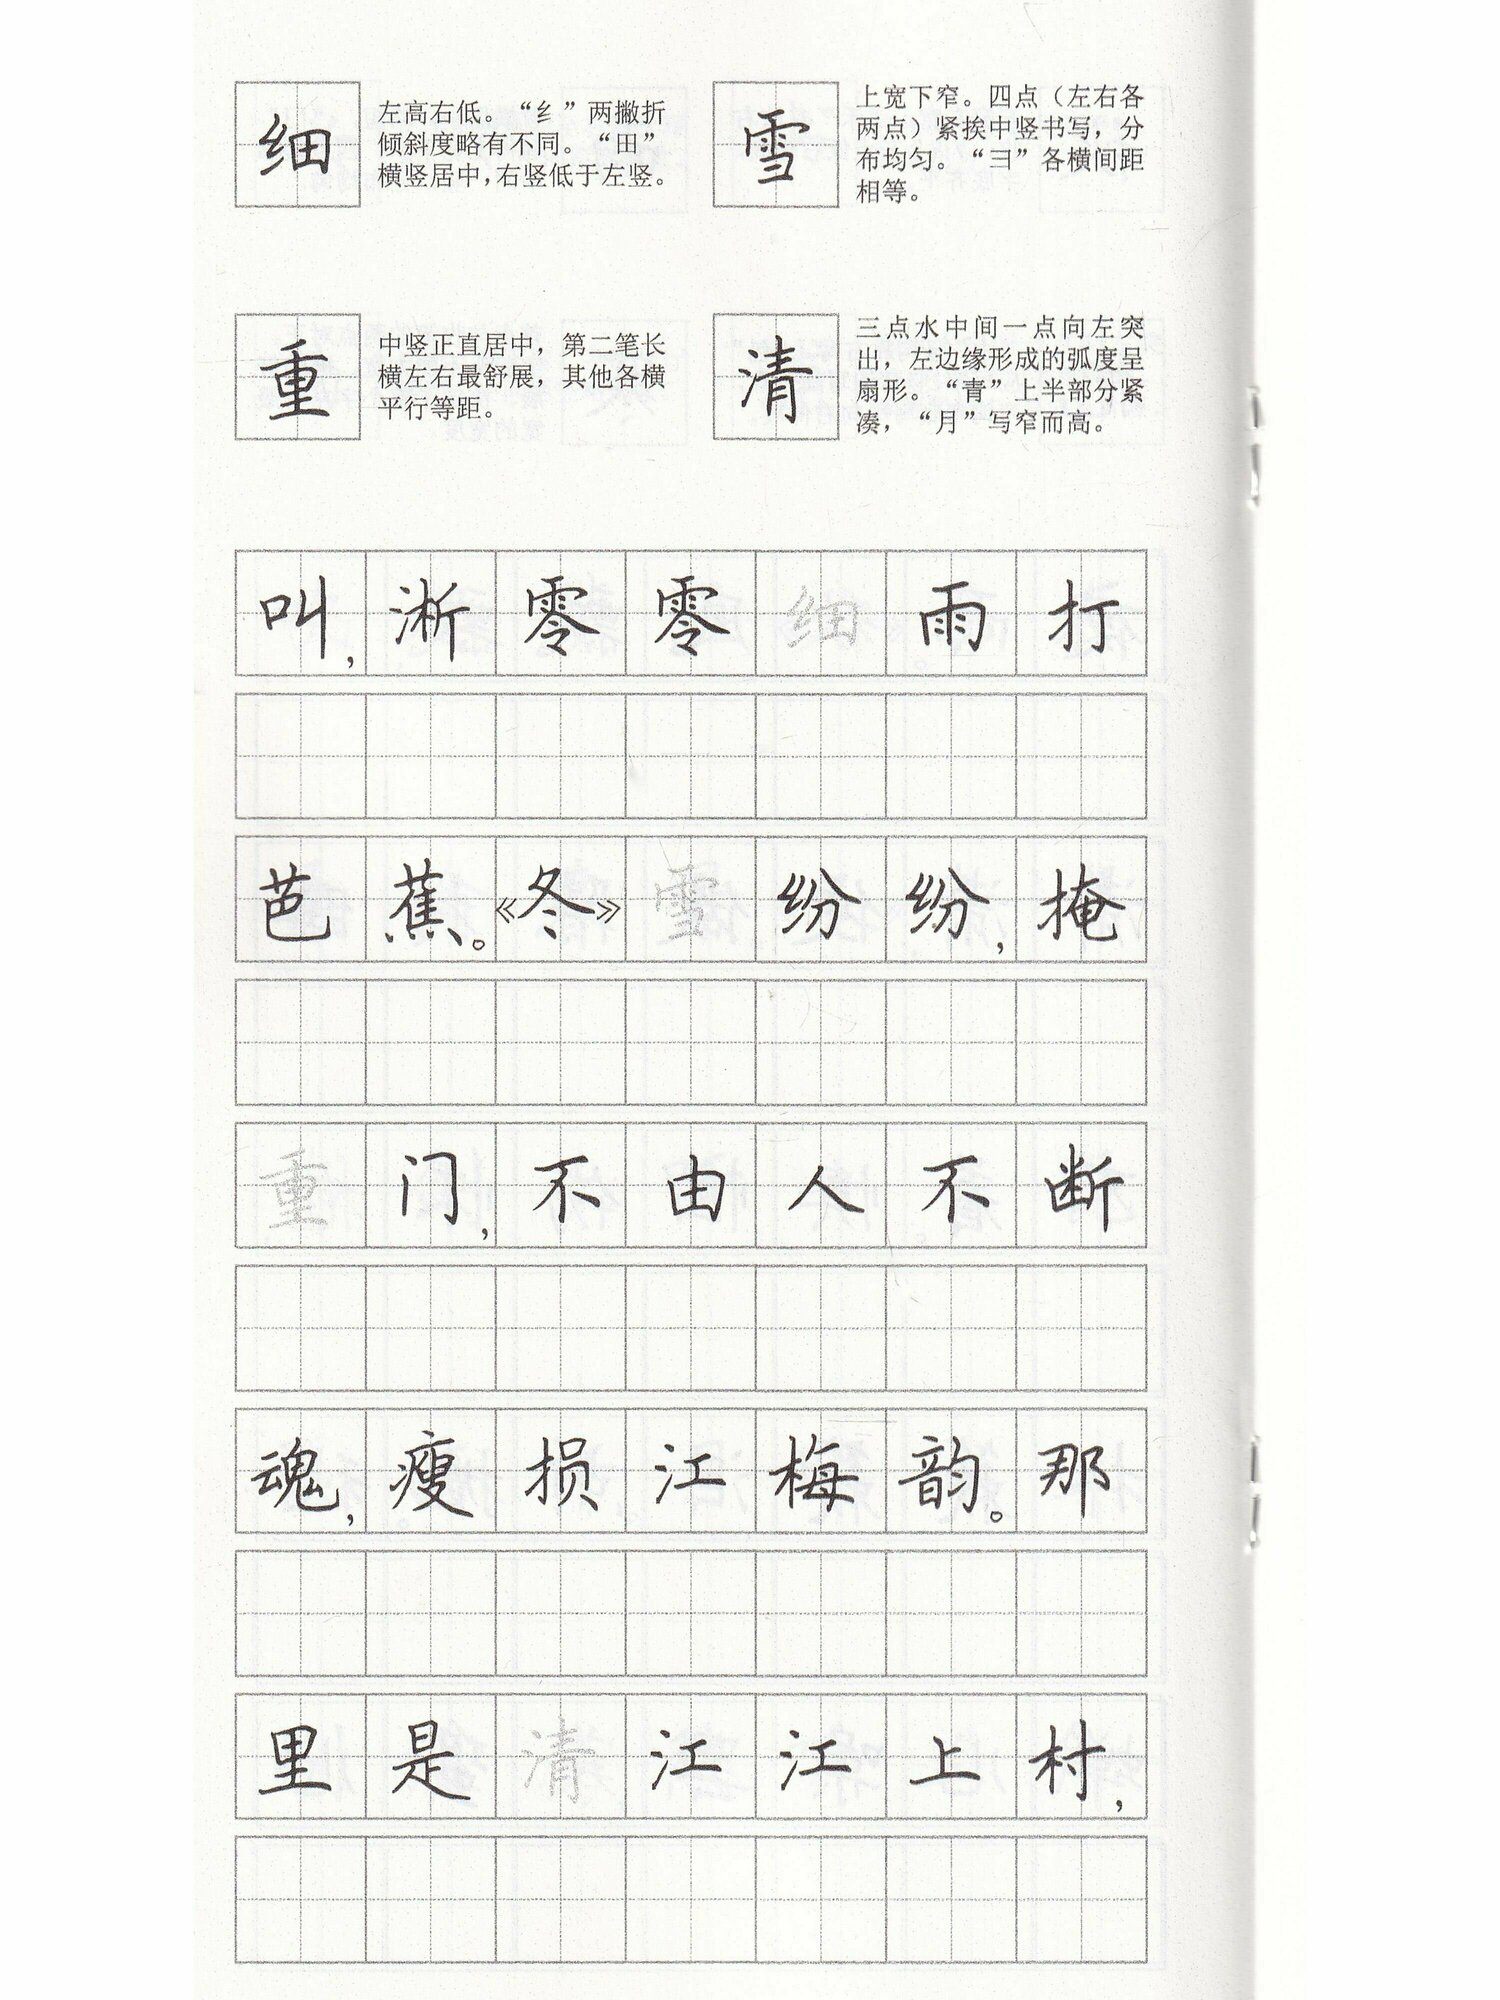 细
左高右低。“纟”两撇折
倾斜度略有不同。“田”
横竖居中,右竖低于左竖。
雪
上宽下窄。四点（左右各
两点）紧挨中竖书写，分
布均匀。“彐”各横间距
相等。
重
中竖正直居中，第二笔长
横左右最舒展，其他各横
平行等距。
清
三点水中间一点向左突
出，左边缘形成的弧度呈
扇形。“青”上半部分紧
凑，“月”写窄而高。
叫，淅零零细雨打
芭蕉。《冬》雪纷纷，掩
重门，不由人不断
魂，瘦损江梅韵。那
里是清江江上村，